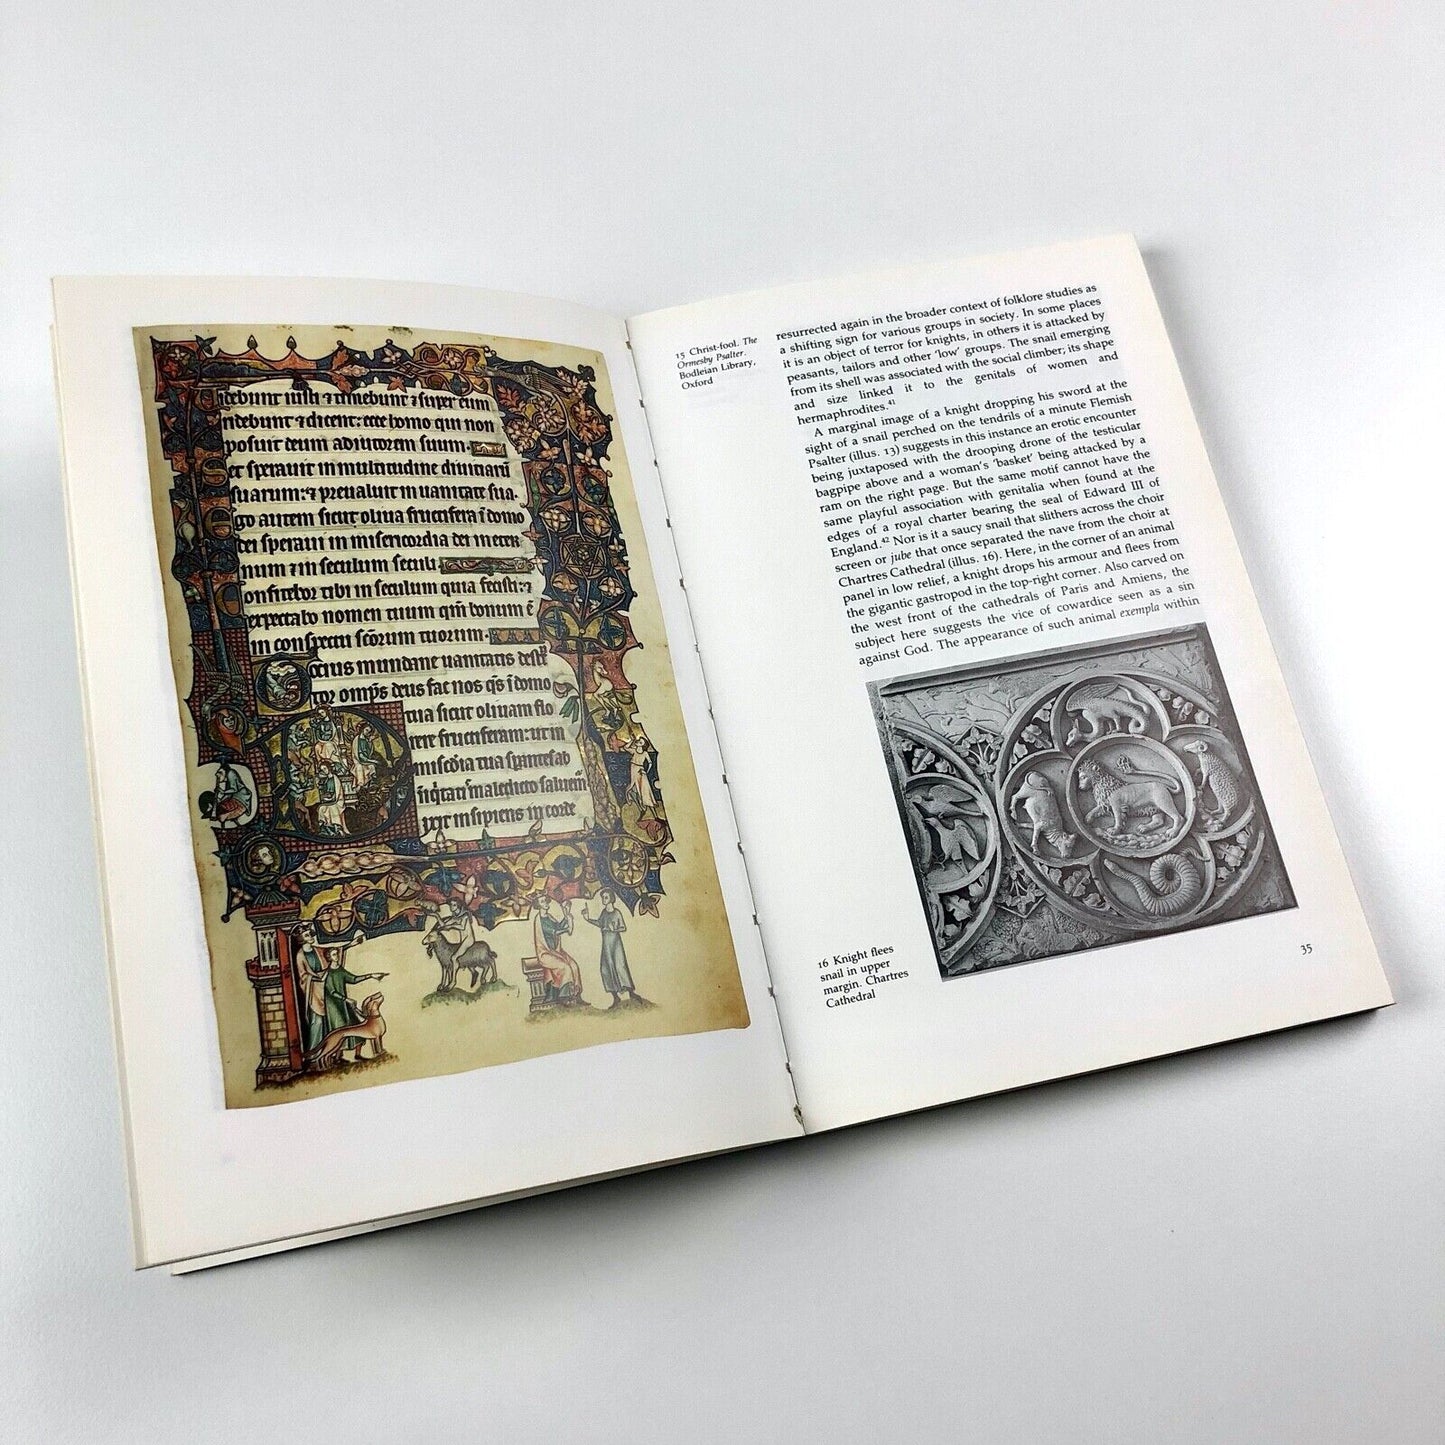 videbunt iusti & timebunt & super eum
ridebunt & dicent: ecce homo qui non
posuit deum adiutorem suum.
Set speravit in multitudine divitiarū
suarum: & prevaluit in vanitate sua.
Ego autem sicut oliva fructifera ī domo
dei speravi in misericordia dei in eter
num & in seculum seculi
Confitebor tibi in seculum quia fecisti: &
expectabo nomen tuum qm̄ bonum ē
in conspectu scōrum tuorum.
ocius mundane vanitatis dest
tor omps deus fac nos qs ī domo
tua sicut olivam flo
rere fructiferam: ut in
misēdia tua sperātes ab
salvem
ixit insipiens in corde
15 Christ-fool. The
Ormesby Psalter.
Bodleian Library,
Oxford
resurrected again in the broader context of folklore studies as
a shifting sign for various groups in society. In some places
it is an object of terror for knights, in others it is attacked by
peasants, tailors and other 'low' groups. The snail emerging
from its shell was associated with the social climber; its shape
and size linked it to the genitals of women and
hermaphrodites.41
A marginal image of a knight dropping his sword at the
sight of a snail perched on the tendrils of a minute Flemish
Psalter (illus. 13) suggests in this instance an erotic encounter
being juxtaposed with the drooping drone of the testicular
bagpipe above and a woman's 'basket' being attacked by a
ram on the right page. But the same motif cannot have the
same playful association with genitalia when found at the
edges of a royal charter bearing the seal of Edward III of
England.42 Nor is it a saucy snail that slithers across the choir
screen or jube that once separated the nave from the choir at
Chartres Cathedral (illus. 16). Here, in the corner of an animal
panel in low relief, a knight drops his armour and flees from
the gigantic gastropod in the top-right corner. Also carved on
the west front of the cathedrals of Paris and Amiens, the
subject here suggests the vice of cowardice seen as a sin
against God. The appearance of such animal exempla within
16 Knight flees
snail in upper
margin. Chartres
Cathedral
35